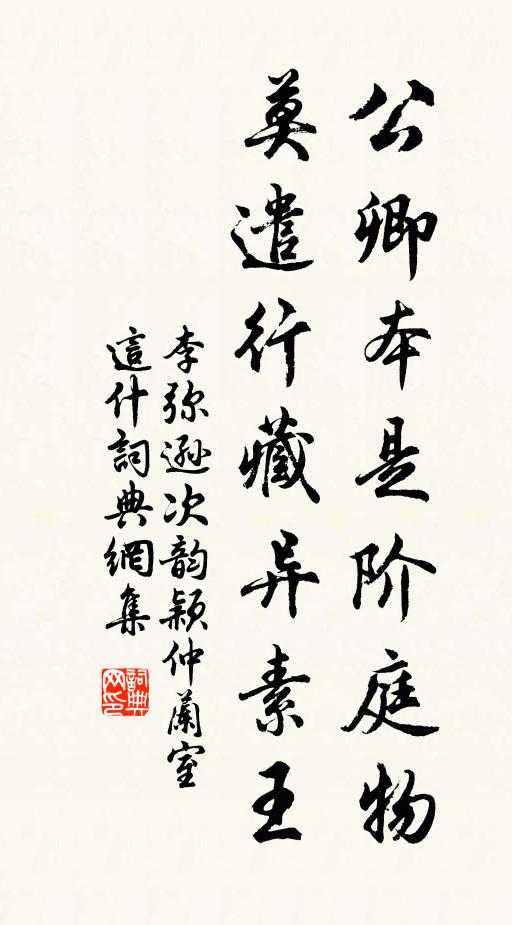 公卿本是阶庭物
莫遣行藏异素王
李弥逊次韵颖仲蘭室
這什詞典網集
詞典网印